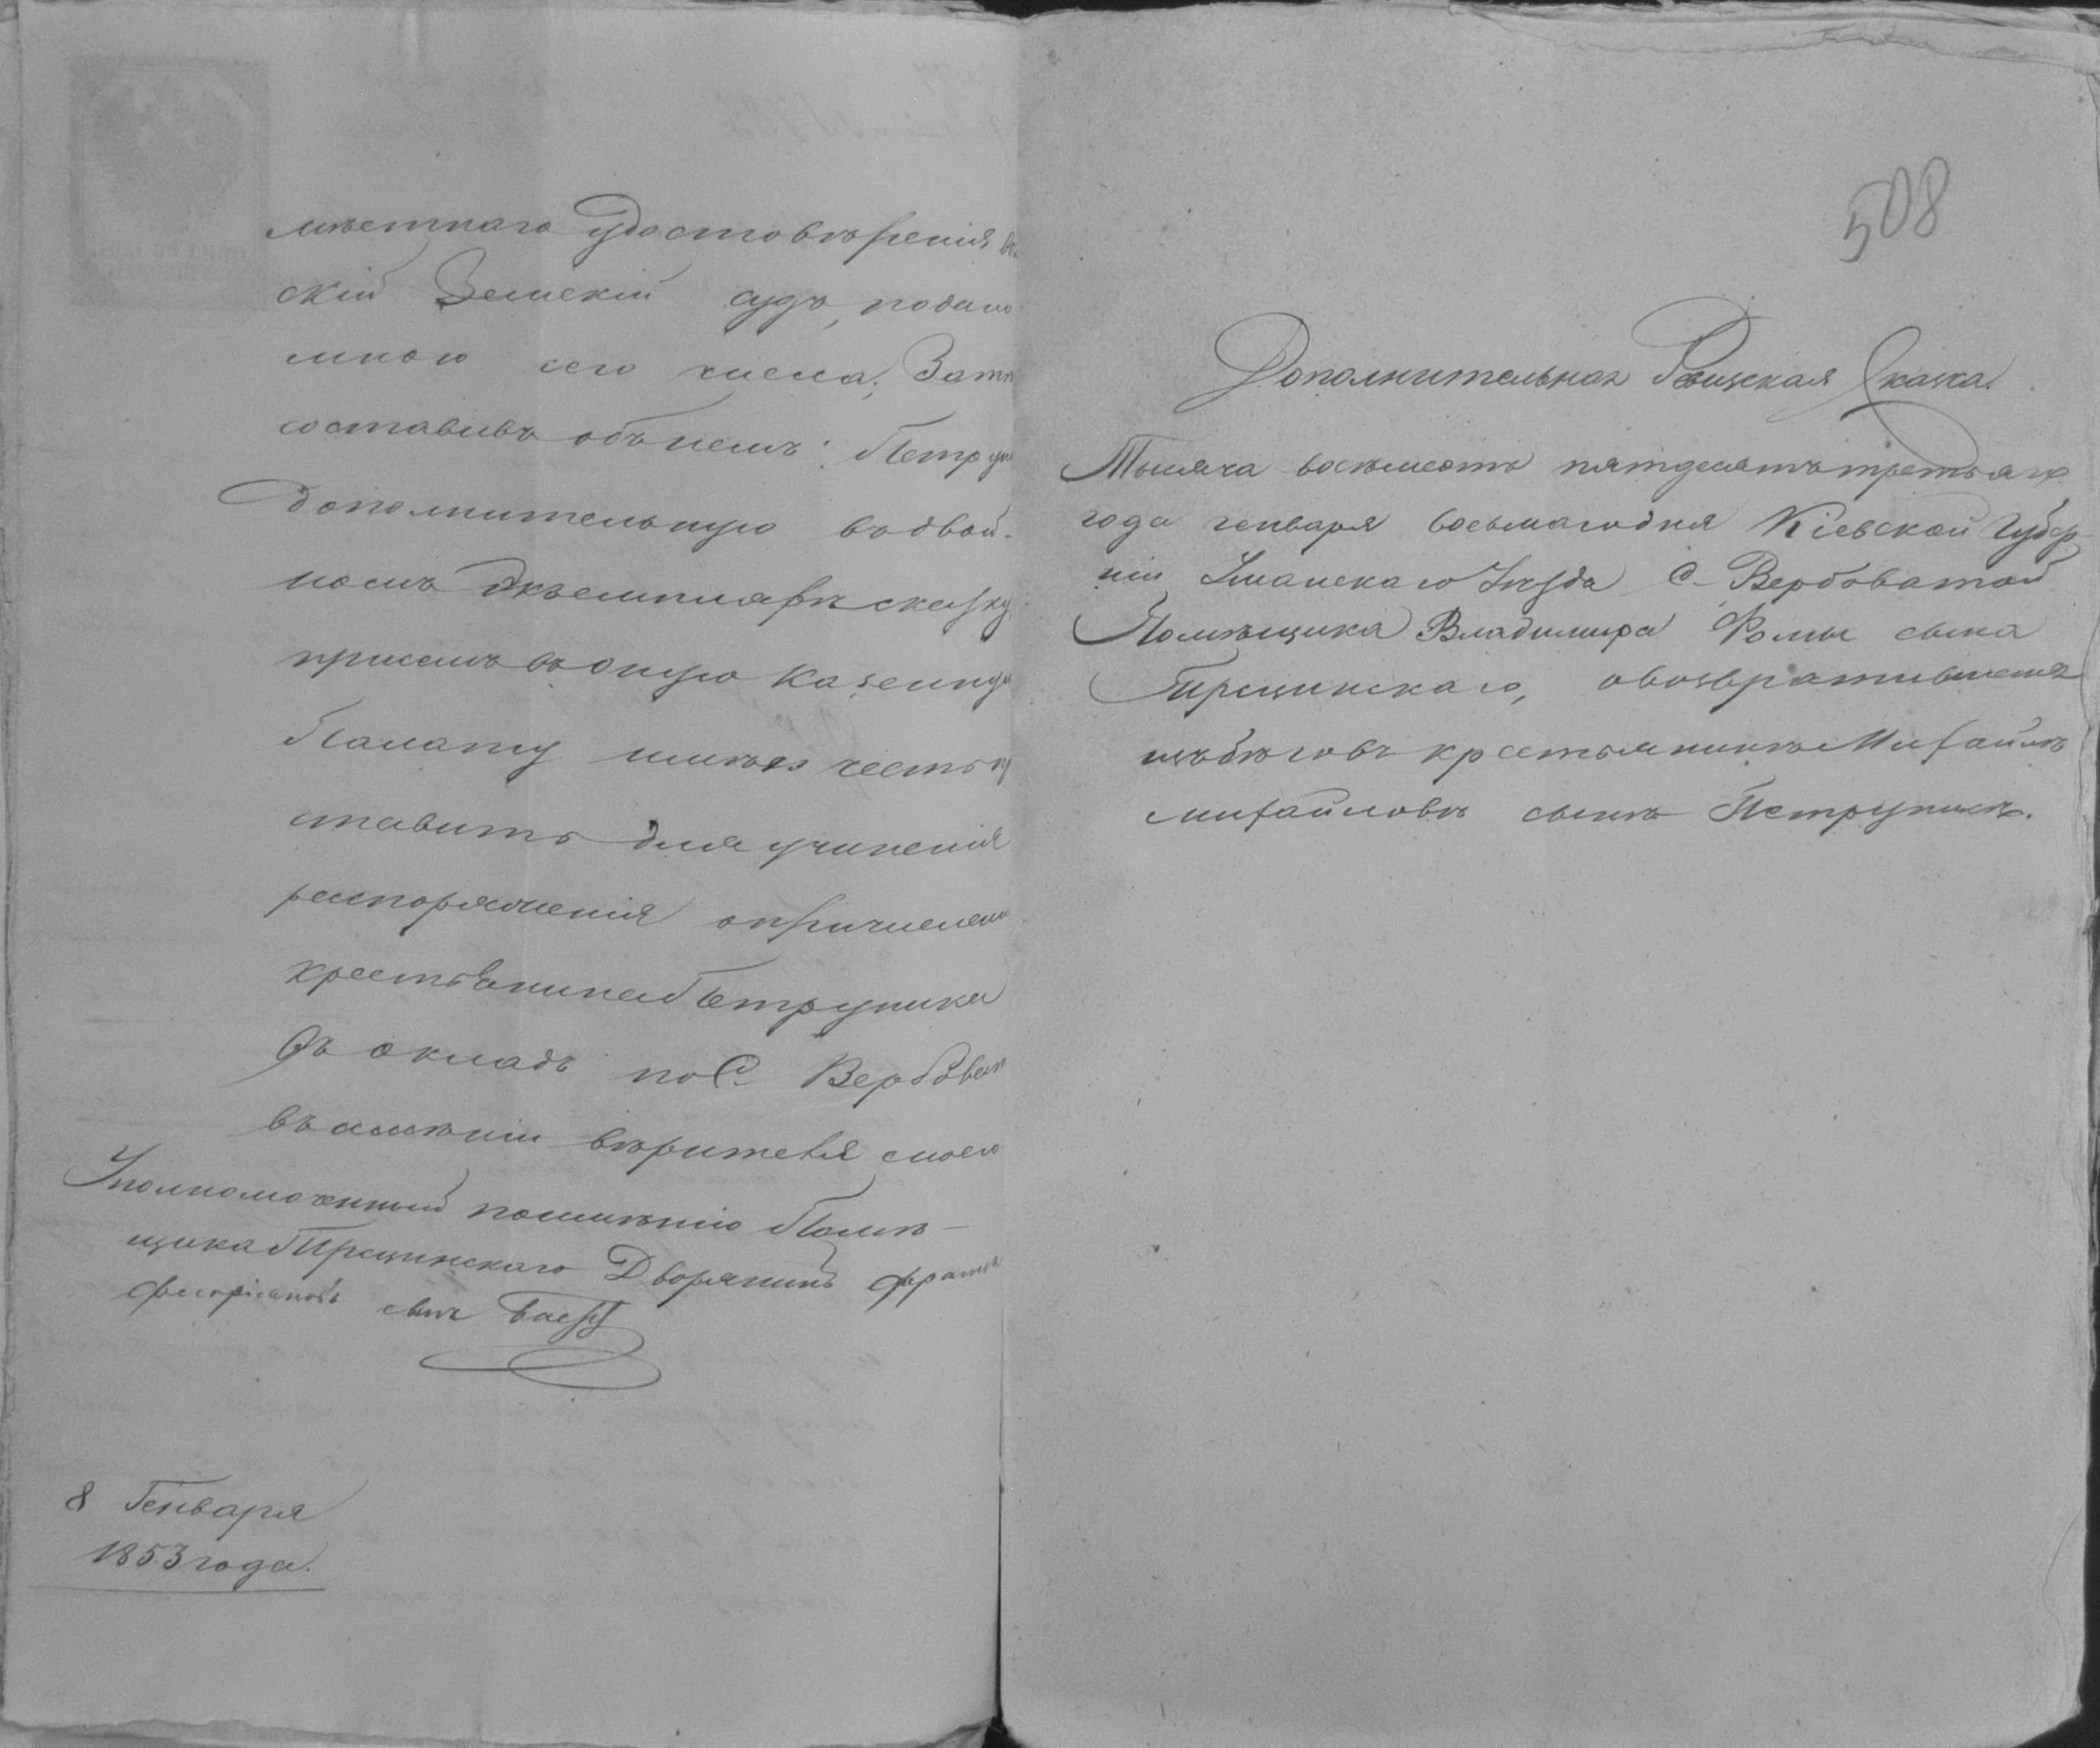 мѣстнаго удостовѣренія
скій Земскій судъ, подано
мною сего числа; Затѣ
составивъ объ немъ: Петру
дополнительную въ двой-
номъ Экземплярѣ сказку,
присемъ въ оную Казенну
Палату имѣю честь
ставить для учиненія
распоряженія опричислені
крестьянина Петруника
въ окладъ по С. Вербова
въ имѣніи вѣрителя моего
Уполномоченный поимѣнію Помѣ-
щика Прещинскаго Дворянинъ Франц
сынъ
8 Генваря
1853 года.
508
Дополнительная Ревизская Сказка.
Тысяча восемьсотъ пятдесятъ третьяго
года генваря восьмаго дня Кіевской Губер-
ніи Уманскаго Уѣзда С. Вербоватой
Помѣщика Владимира Фомы сына
Прещинскаго, овозвратившемся
изъ бѣговъ крестьянинѣ Михайлѣ
Михайловѣ сынѣ Петруникѣ.